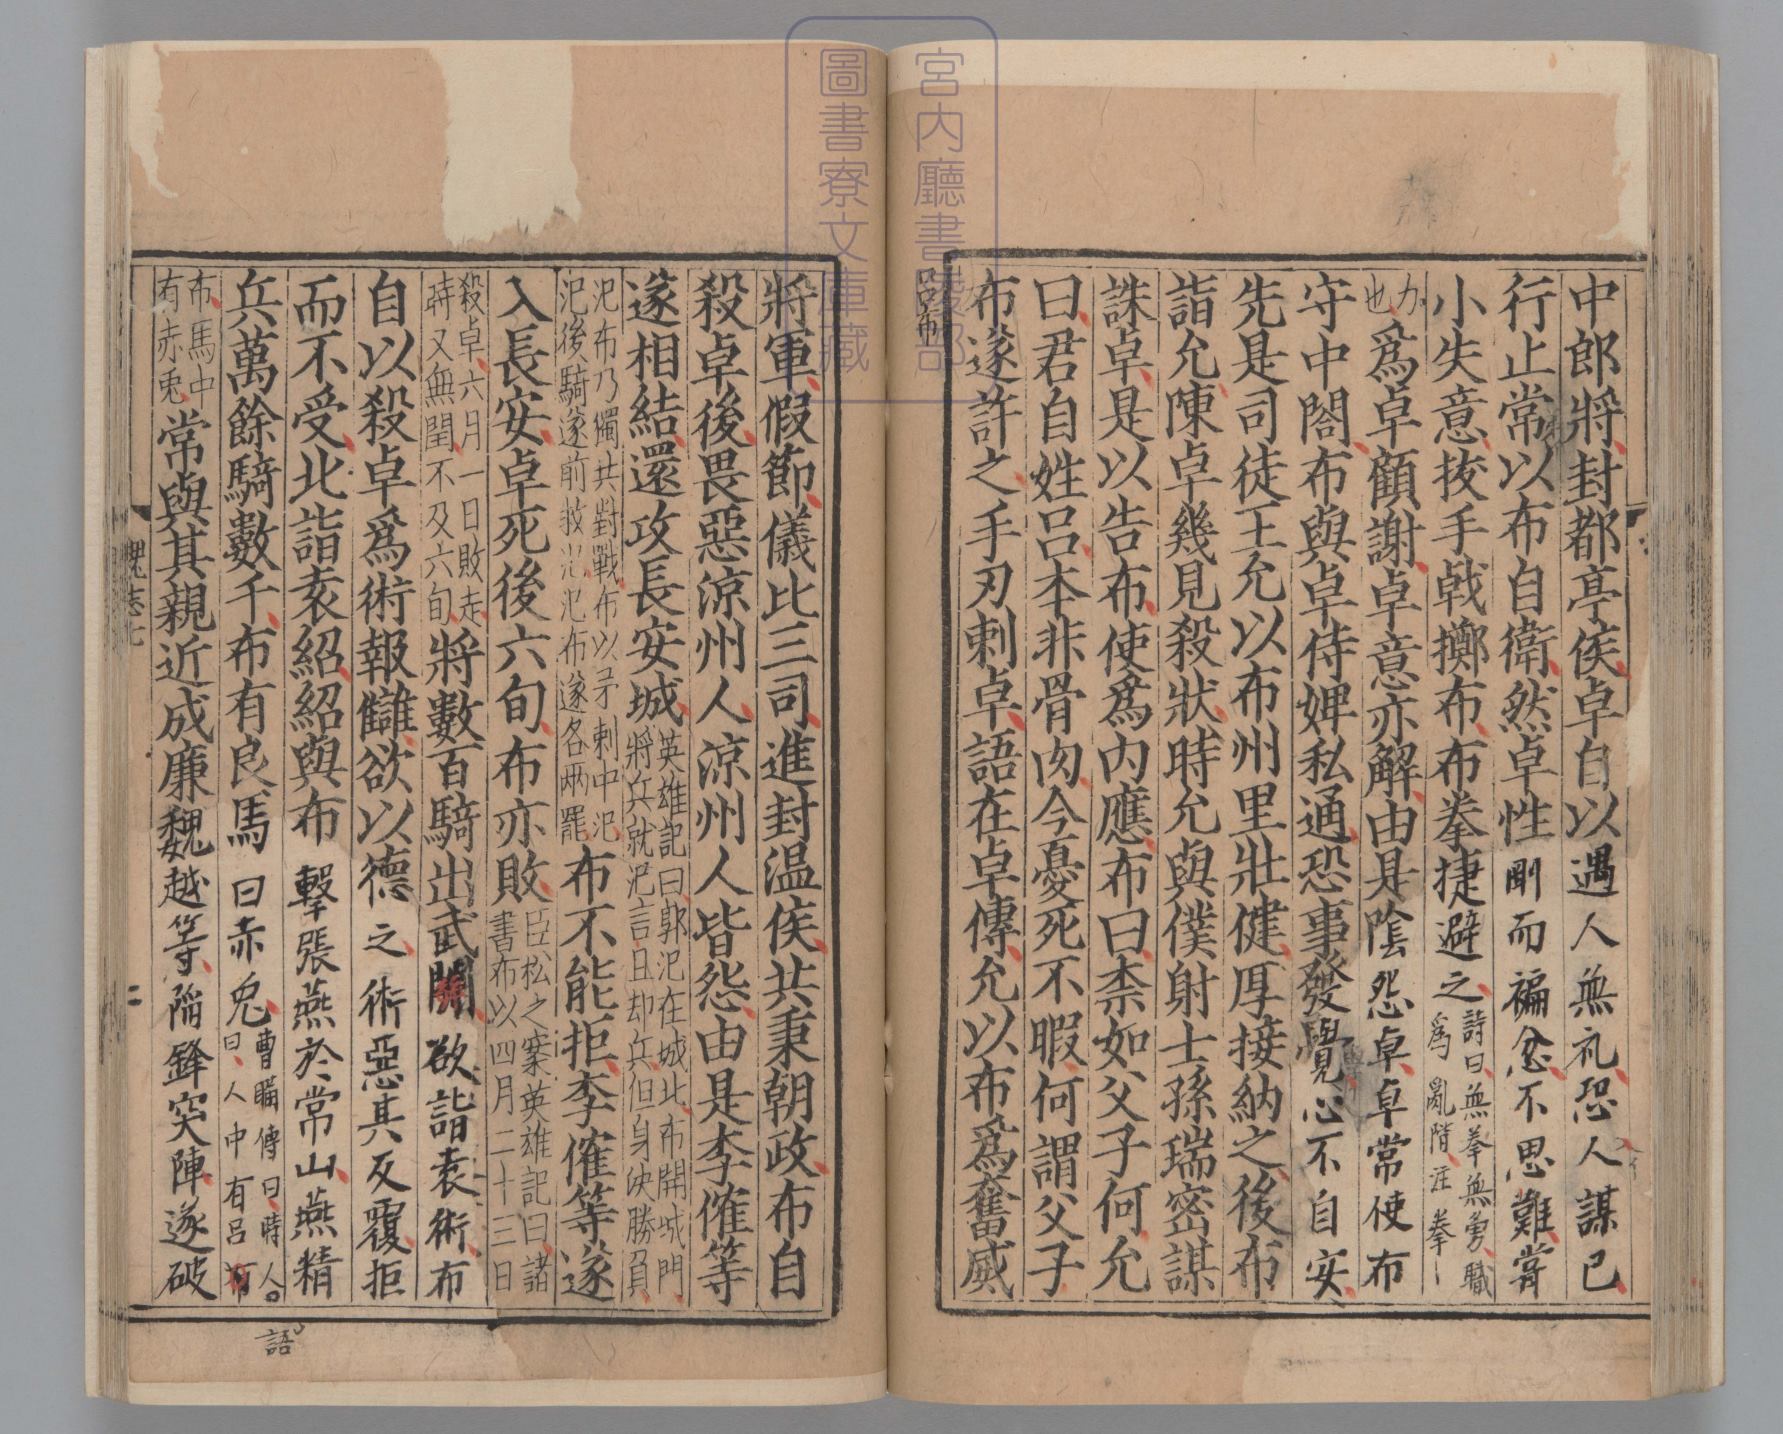 中郎將封都亭侯卓自以遇人無礼恐人謀己
行止常以布自衛然卓性剛而褊忿不思難嘗
小失意拔手戟擲布布拳捷避之詩曰無拳無勇職
爲亂階注拳
力
也爲卓顧謝卓意亦解由是陰怨卓卓常使布
守中閤布與卓侍婢私通恐事發覺心不自安
先是司徒王允以布州里壯健厚接納之後布
詣允陳卓幾見殺狀時允與僕射士孫瑞密謀
誅卓是以告布使爲内應布曰柰如父子何允
曰君自姓吕本非骨肉今憂死不暇何謂父子
布遂許之手刃刺卓語在卓傳允以布爲奮威
吕布
將軍假節儀比三司進封温侯共秉朝政布自
殺卓後畏惡涼州人涼州人皆怨由是李傕等
遂相結還攻長安城英雄記曰郭汜在城北布開城門
將兵就汜言且却兵但身決勝負
汜布乃獨共對戰布以矛刺中汜
汜後騎遂前救汜汜布遂各兩罷布不能拒李傕等遂
入長安卓死後六旬布亦敗臣松之案英雄記曰諸
書布以四月二十三日
殺卓六月一日敗走
時又無閏不及六旬將數百騎出武關欲詣袁術布
自以殺卓爲術報讎欲以德之術惡其反覆拒
而不受北詣袁紹紹與布擊張燕於常山燕精
兵萬餘騎數千布有良馬曰赤兔曹瞞傳曰時人
曰人中有吕布
布馬中
有赤兎常與其親近成廉魏越等陷鋒突陣遂破
魏志七
語
宮内廳書陵部
圖書寮文庫藏